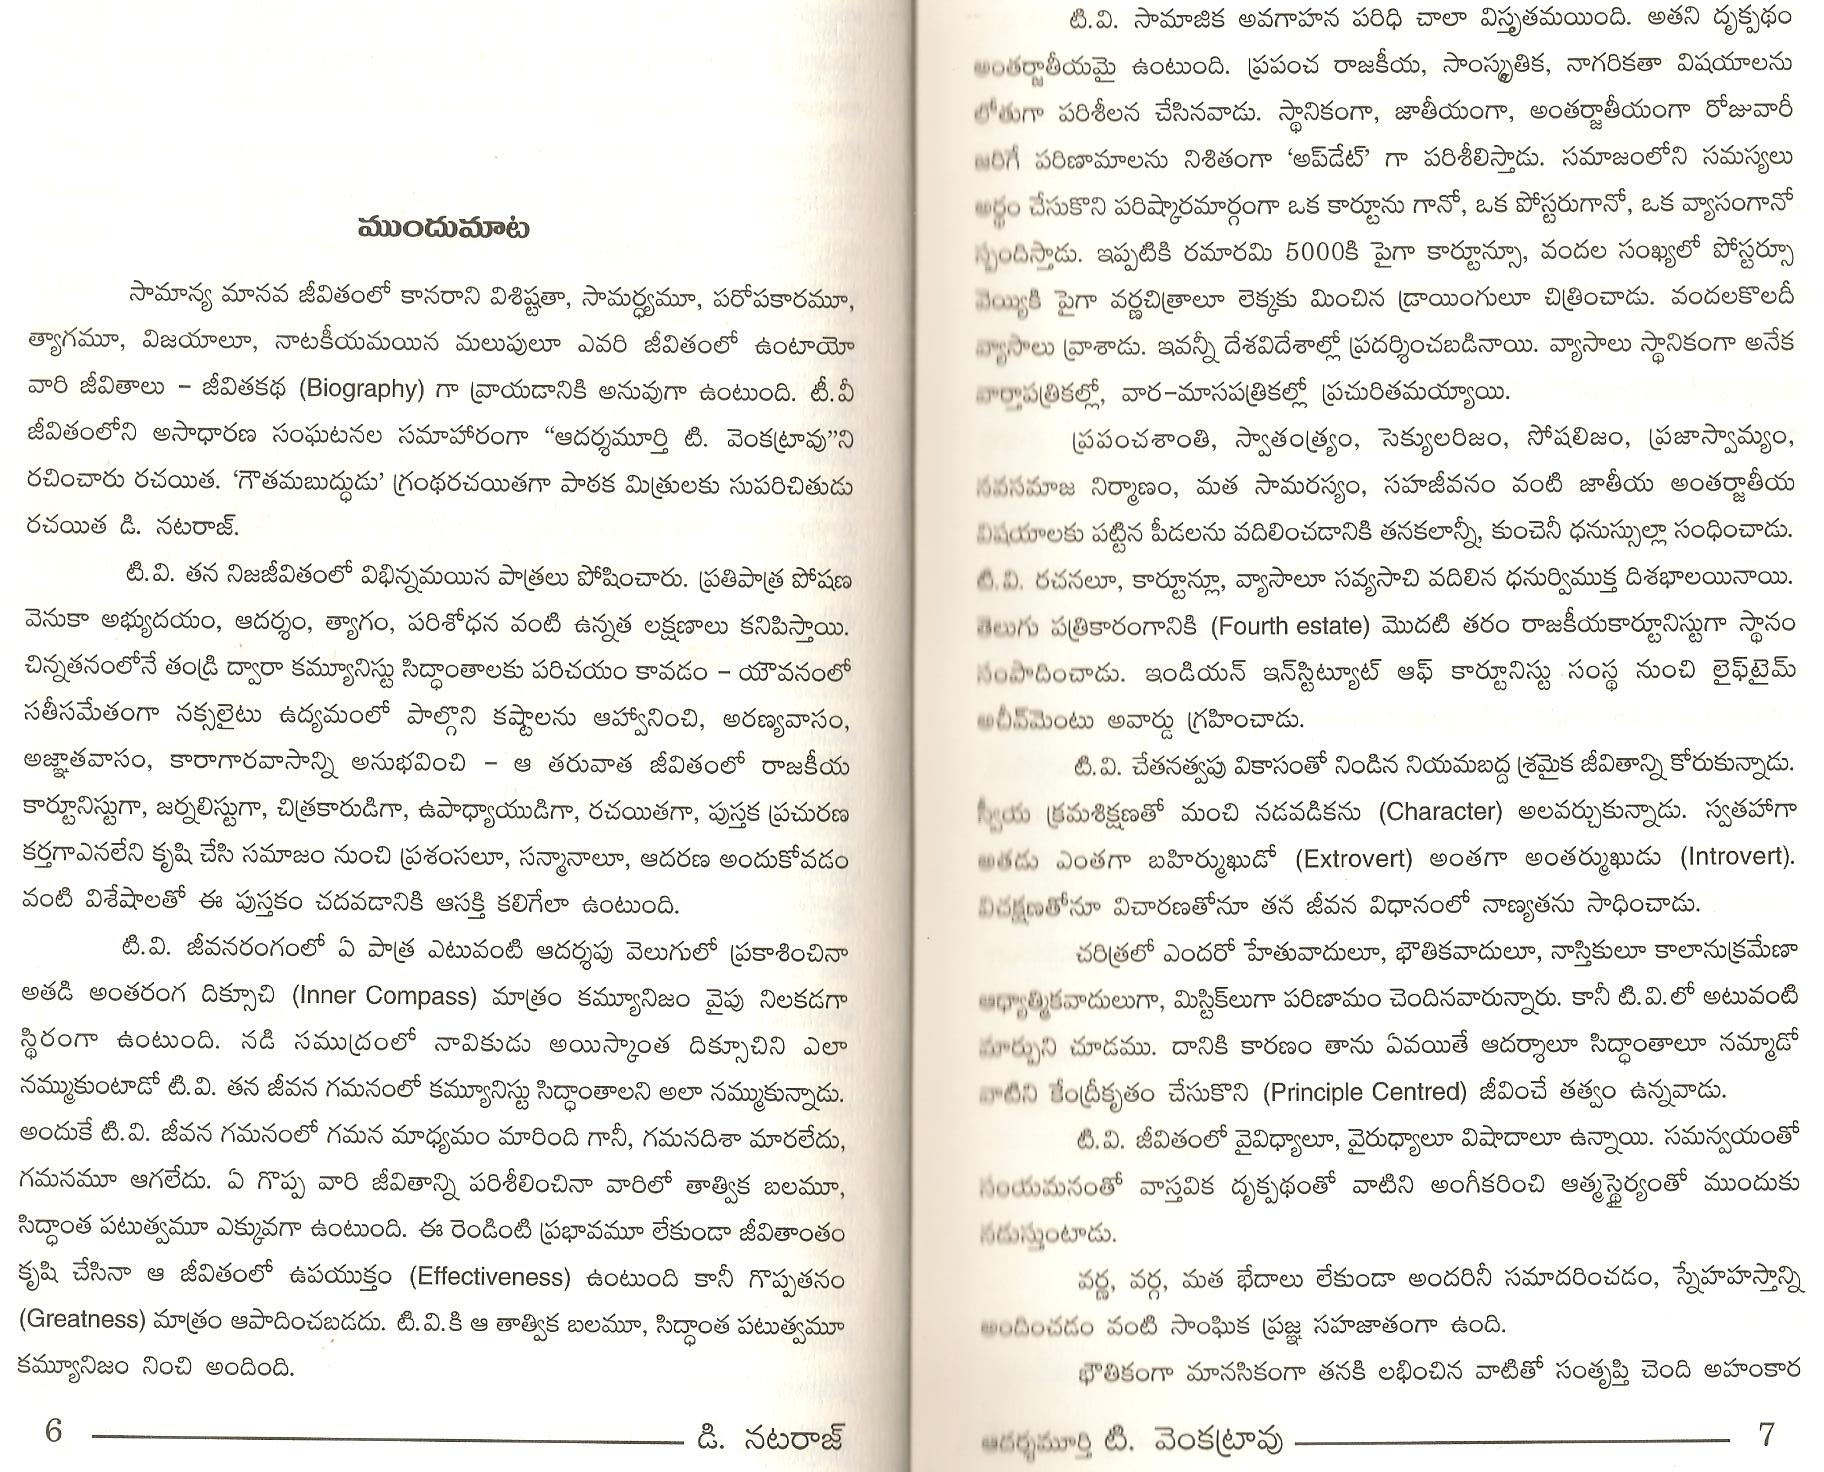 ముందుమాట
సామాన్య మానవ జీవితంలో కానరాని విశిష్టతా, సామర్థ్యమూ, పరోపకారమూ,
త్యాగమూ, విజయాలూ, నాటకీయమయిన మలుపులూ ఎవరి జీవితంలో ఉంటాయో
వారి జీవితాలు – జీవితకథ (Biography) గా వ్రాయడానికి అనువుగా ఉంటుంది. టీ.వీ
జీవితంలోని అసాధారణ సంఘటనల సమాహారంగా “ఆదర్శమూర్తి టి. వెంకట్రావు”ని
రచించారు రచయిత. ‘గౌతమబుద్ధుడు’ గ్రంథరచయితగా పాఠక మిత్రులకు సుపరిచితుడు
రచయిత డి. నటరాజ్.
టి.వి. తన నిజజీవితంలో విభిన్నమయిన పాత్రలు పోషించారు. ప్రతిపాత్ర పోషణ
వెనుకా అభ్యుదయం, ఆదర్శం, త్యాగం, పరిశోధన వంటి ఉన్నత లక్షణాలు కనిపిస్తాయి.
చిన్నతనంలోనే తండ్రి ద్వారా కమ్యూనిస్టు సిద్ధాంతాలకు పరిచయం కావడం – యౌవనంలో
సతీసమేతంగా నక్సలైటు ఉద్యమంలో పాల్గొని కష్టాలను ఆహ్వానించి, అరణ్యవాసం,
అజ్ఞాతవాసం, కారాగారవాసాన్ని అనుభవించి – ఆ తరువాత జీవితంలో రాజకీయ
కార్టూనిస్టుగా, జర్నలిస్టుగా, చిత్రకారుడిగా, ఉపాధ్యాయుడిగా, రచయితగా, పుస్తక ప్రచురణ
కర్తగాఎనలేని కృషి చేసి సమాజం నుంచి ప్రశంసలూ, సన్మానాలూ, ఆదరణ అందుకోవడం
వంటి విశేషాలతో ఈ పుస్తకం చదవడానికి ఆసక్తి కలిగేలా ఉంటుంది.
టి.వి. జీవనరంగంలో ఏ పాత్ర ఎటువంటి ఆదర్శపు వెలుగులో ప్రకాశించినా
అతడి అంతరంగ దిక్సూచి (Inner Compass) మాత్రం కమ్యూనిజం వైపు నిలకడగా
స్థిరంగా ఉంటుంది. నడి సముద్రంలో నావికుడు అయిస్కాంత దిక్సూచిని ఎలా
నమ్ముకుంటాడో టి.వి. తన జీవన గమనంలో కమ్యూనిస్టు సిద్ధాంతాలని అలా నమ్ముకున్నాడు.
అందుకే టి.వి. జీవన గమనంలో గమన మాధ్యమం మారింది గానీ, గమనదిశా మారలేదు,
గమనమూ ఆగలేదు. ఏ గొప్ప వారి జీవితాన్ని పరిశీలించినా వారిలో తాత్విక బలమూ,
సిద్ధాంత పటుత్వమూ ఎక్కువగా ఉంటుంది. ఈ రెండింటి ప్రభావమూ లేకుండా జీవితాంతం
కృషి చేసినా ఆ జీవితంలో ఉపయుక్తం (Effectiveness) ఉంటుంది కానీ గొప్పతనం
(Greatness) మాత్రం ఆపాదించబడదు. టి.వి.కి ఆ తాత్విక బలమూ, సిద్ధాంత పటుత్వమూ
కమ్యూనిజం నించి అందింది.
6 డి. నటరాజ్
టి.వి. సామాజిక అవగాహన పరిధి చాలా విస్తృతమయింది. అతని దృక్పథం
అంతర్జాతీయమై ఉంటుంది. ప్రపంచ రాజకీయ, సాంస్కృతిక, నాగరికతా విషయాలను
లోతుగా పరిశీలన చేసినవాడు. స్థానికంగా, జాతీయంగా, అంతర్జాతీయంగా రోజువారీ
జరిగే పరిణామాలను నిశితంగా ‘అప్‌డేట్’ గా పరిశీలిస్తాడు. సమాజంలోని సమస్యలు
అర్థం చేసుకొని పరిష్కారమార్గంగా ఒక కార్టూను గానో, ఒక పోస్టరుగానో, ఒక వ్యాసంగానో
స్పందిస్తాడు. ఇప్పటికి రమారమి 5000కి పైగా కార్టూన్సూ, వందల సంఖ్యలో పోస్టర్సూ
వెయ్యికి పైగా వర్ణచిత్రాలూ లెక్కకు మించిన డ్రాయింగులూ చిత్రించాడు. వందలకొలదీ
వ్యాసాలు వ్రాశాడు. ఇవన్నీ దేశవిదేశాల్లో ప్రదర్శించబడినాయి. వ్యాసాలు స్థానికంగా అనేక
వార్తాపత్రికల్లో, వార–మాసపత్రికల్లో ప్రచురితమయ్యాయి.
ప్రపంచశాంతి, స్వాతంత్ర్యం, సెక్యులరిజం, సోషలిజం, ప్రజాస్వామ్యం,
నవసమాజ నిర్మాణం, మత సామరస్యం, సహజీవనం వంటి జాతీయ అంతర్జాతీయ
విషయాలకు పట్టిన పీడలను వదిలించడానికి తనకలాన్నీ, కుంచెనీ ధనుస్సుల్లా సంధించాడు.
టి.వి. రచనలూ, కార్టూన్లూ, వ్యాసాలూ సవ్యసాచి వదిలిన ధనుర్విముక్త దిశభాలయినాయి.
తెలుగు పత్రికారంగానికి (Fourth estate) మొదటి తరం రాజకీయకార్టూనిస్టుగా స్థానం
సంపాదించాడు. ఇండియన్ ఇన్‌స్టిట్యూట్ ఆఫ్ కార్టూనిస్టు సంస్థ నుంచి లైఫ్‌టైమ్
అచీవ్‌మెంటు అవార్డు గ్రహించాడు.
టి.వి. చేతనత్వపు వికాసంతో నిండిన నియమబద్ద శ్రమైక జీవితాన్ని కోరుకున్నాడు.
స్వీయ క్రమశిక్షణతో మంచి నడవడికను (Character) అలవర్చుకున్నాడు. స్వతహాగా
అతడు ఎంతగా బహిర్ముఖుడో (Extrovert) అంతగా అంతర్ముఖుడు (Introvert).
విచక్షణతోనూ విచారణతోనూ తన జీవన విధానంలో నాణ్యతను సాధించాడు.
చరిత్రలో ఎందరో హేతువాదులూ, భౌతికవాదులూ, నాస్తికులూ కాలానుక్రమేణా
ఆధ్యాత్మికవాదులుగా, మిస్టిక్‌లుగా పరిణామం చెందినవారున్నారు. కానీ టి.వి.లో అటువంటి
మార్పుని చూడము. దానికి కారణం తాను ఏవయితే ఆదర్శాలూ సిద్ధాంతాలూ నమ్మాడో
వాటిని కేంద్రీకృతం చేసుకొని (Principle Centred) జీవించే తత్వం ఉన్నవాడు.
టి.వి. జీవితంలో వైవిధ్యాలూ, వైరుధ్యాలూ విషాదాలూ ఉన్నాయి. సమన్వయంతో
సంయమనంతో వాస్తవిక దృక్పథంతో వాటిని అంగీకరించి ఆత్మస్థైర్యంతో ముందుకు
నడుస్తుంటాడు.
వర్ణ, వర్గ, మత భేదాలు లేకుండా అందరినీ సమాదరించడం, స్నేహహస్తాన్ని
అందించడం వంటి సాంఘిక ప్రజ్ఞ సహజాతంగా ఉంది.
భౌతికంగా మానసికంగా తనకి లభించిన వాటితో సంతృప్తి చెంది అహంకార
ఆదర్శమూర్తి టి. వెంకట్రావు 7